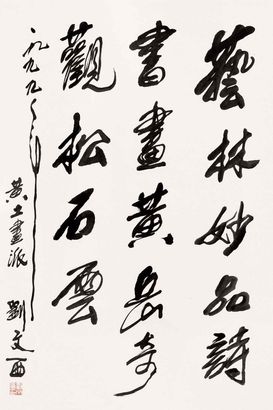 藝林妙品詩
書畫黃岳奇
觀松石雲
一九九九年
黃土畫派
劉文西